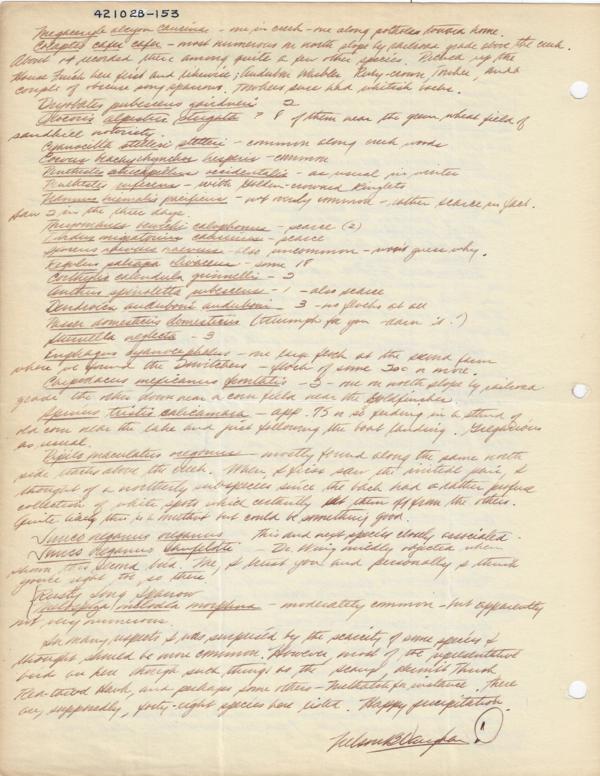 421028-153
Megaceryle alcyon caurina - one in creek - one along potholes toward home.
Colaptes cafer cafer - most numerous on north slope by railroad grade above the creek.
About 14 recorded there among quite a few other species. Picked up the
House Finch here first and likewise; Audubon Warbler, Ruby-crown, Towhee, and a
couple of obscure song sparrows. Towhees sure had whitish backs.
Dryobates pubescens gairdneri 2
Otocoris alpestris strigata ? 8 of them near the green wheat field of
sandhill notoriety.
Cyanocitta stelleri stelleri - common along creek woods
Corvus brachyrhynchos hesperis - common
Penthestes atricapillus occidentalis - as usual in winter
Penthestes rufescens - with Golden-crowned Kinglets
Nannus hiemalis pacificus - not overly common - rather scarce in fact.
Saw 2 in the three days.
Thryomanes bewicki calophonus - scarce (2)
Turdus migratorius - scarce
Ixoreus naevius naevius - also uncommon - won't guess why.
Regulus satrapa olivaceus - some 18
Corthylio calendula grinnelli - 2
Anthus spinoletta rubescens - 1 - also scarce
Dendroica auduboni auduboni - 3 - no flocks at all
Passer domesticus domesticus (triumph for you - darn it!)
Sturnella neglecta - 3
Euphagus cyanocephalus - one large flock at the farm
where we found the Dowitchers - flock of some 200 or more.
Carpodacus mexicanus frontalis - 3 - one on north slope by railroad
grade the other down near a corn field near the Goldfinches.
Spinus tristis salicamans - app. 75 or so feeding in a stand of
old corn near the lake and just following the boat landing. Gregarious
as usual.
Pipilo maculatus oregonus - mostly found along the same north
side tracks above the creek. When I first saw the initial pair, I
thought of a northerly subspecies since the back had a rather profuse
collection of white spots which certainly set them off from the others.
Quite likely this is a but could be something good.
Junco oreganus oreganus This and next species closely associated.
Junco oreganus shufeldti - Dr. Wing mildly objected when
shown this second bird. Me, I trust you and personally I think
you're right too, so there.
Rusty Song Sparrow
Melospiza melodia morphna - moderately common - but apparently
not very numerous.
In many respects I was surprised by the scarcity of some species I
thought should be more common. However most of the representative
birds are here though such things as the scaup, Hermit Thrush
Red-tailed Hawk, and perhaps some others - Nuthatch for instance. There
are, supposedly, forty-eight species here listed. Happy precipitation.